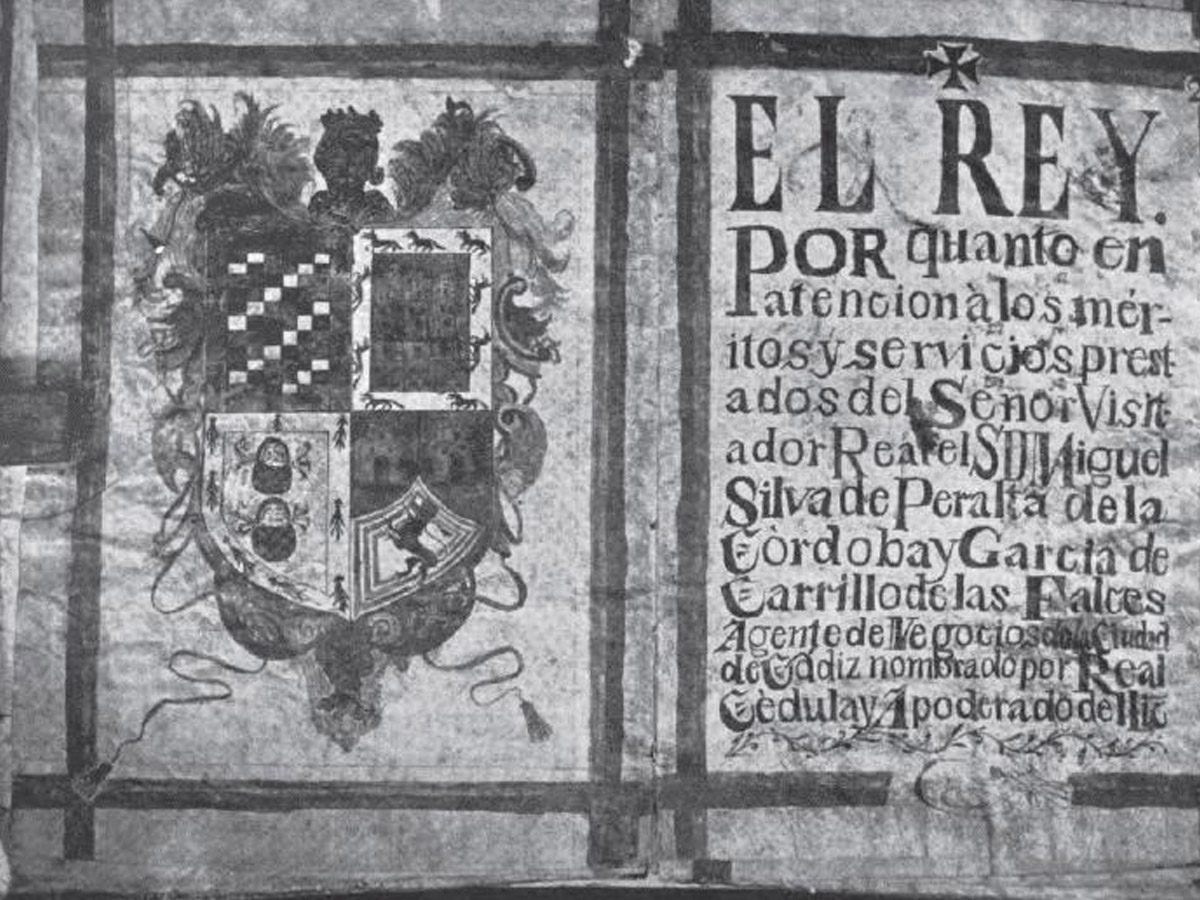 EL REY.
POR quanto en
atencion à los mér-
itos y servicios prest
ados del Señor Visit-
ador Real el SD Miguel
Silva de Peralta de la
Còrdoba y Garcia de
Carrillo de las Falces
Agente de Negocios de la Ciudad
de Cádiz nombrado por Real
Cèdula y Apoderado del